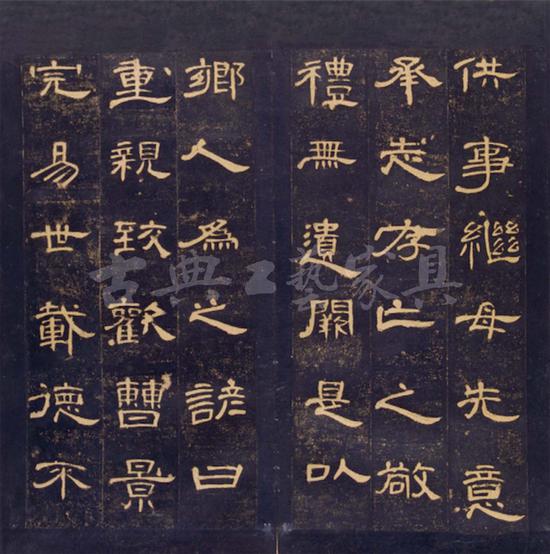 供事繼母先意
承志存亡之敬
禮無遺闕是以
鄉人為之諺曰
重親致歡曹景
完易世載德不
古典工藝家具